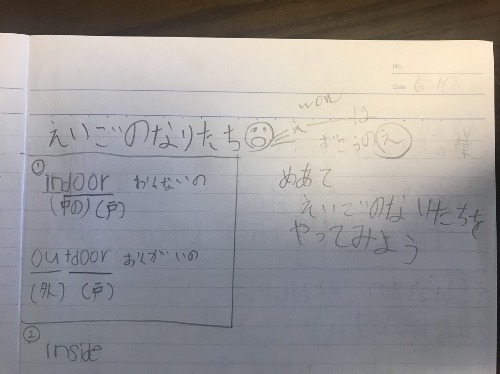 No.
Date 6・10
えいごのなりたち
え
は
ずこうのえ
①
indoor おくないの
(中の)(戸)
outdoor おくがいの
(外) (戸)
めあて
えいごのなりたちを
やってみよう
②
inside